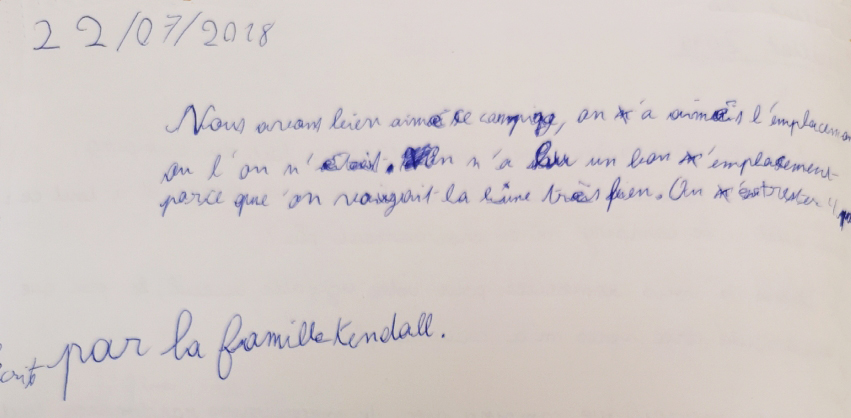 22/07/2018
Nous avons bien aimé se camping, on a aimés l'emplacemen
ou l'on n'était. On n'a un bon emplasement
parce que 'on voiyait la lune très bien. On est rester 4
écrit par la famille Kendall.